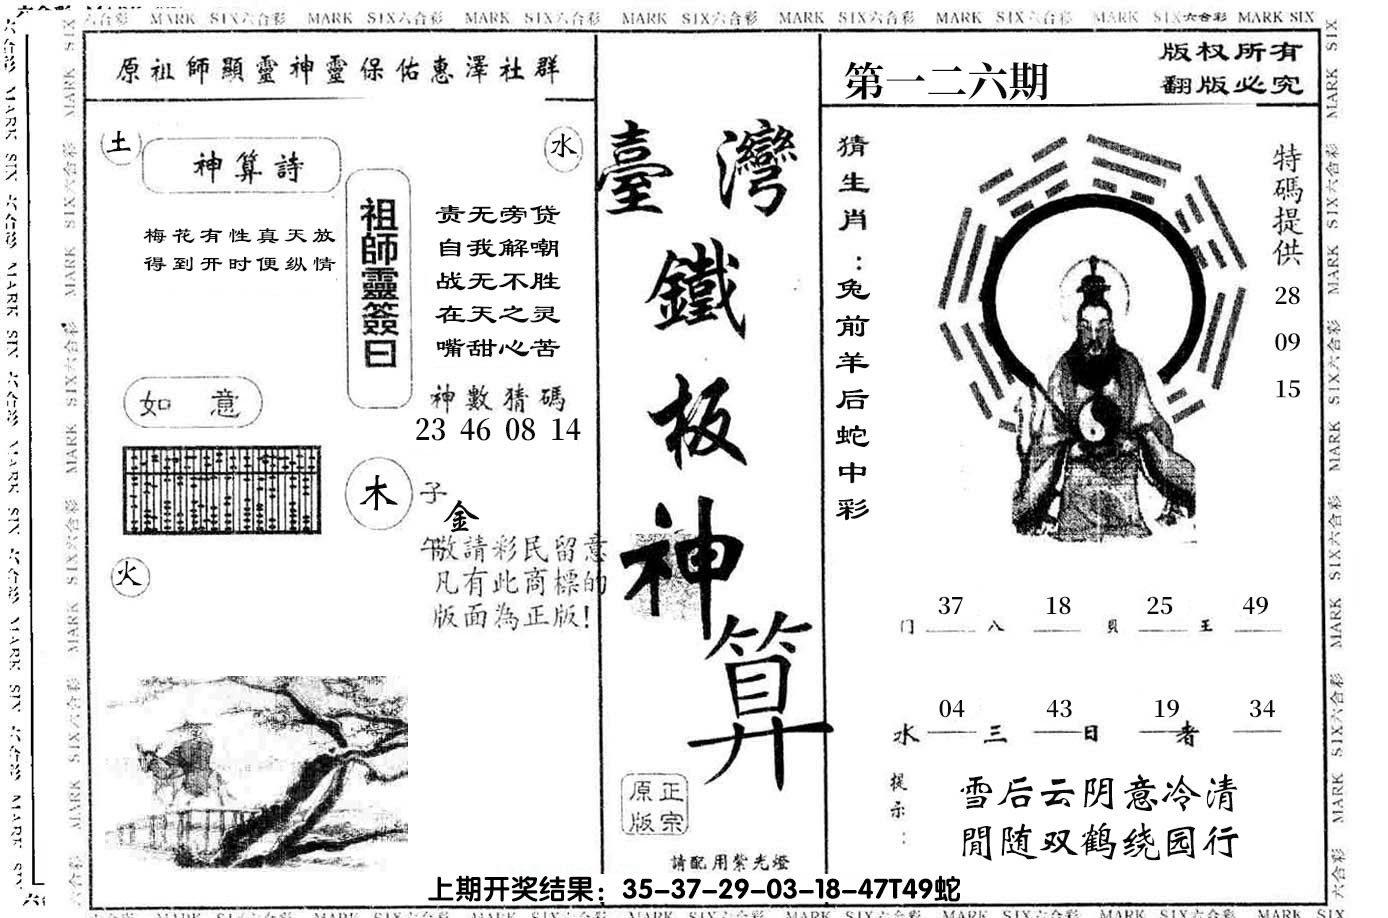 MARK SIX六合彩 MARK SIX六合彩 MARK SIX六合彩 MARK SIX六合彩 MARK SIX六合彩 MARK SIX六合彩 MARK SIX六合彩 MARK SIX
原祖師顯靈神靈保佑惠澤社群
土
神算詩
水
梅花有性真天放
得到开时便纵情
祖師靈簽曰
责无旁贷
自我解嘲
战无不胜
在天之灵
嘴甜心苦
神數猜碼
23 46 08 14
如 意
木
子
金
午
敬請彩民留意
凡有此商標的
版面為正版!
火
臺灣
鐵
板
神
算
正宗
原版
請配用紫光燈
第一二六期
版权所有
翻版必究
猜生肖：兔前羊后蛇中彩
特碼提供
28
09
15
37 18 25 49
门 八 貝 王
04 43 19 34
水 三 日 者
提示：
雪后云阴意冷清
閒随双鹤绕园行
上期开奖结果：35-37-29-03-18-47T49蛇